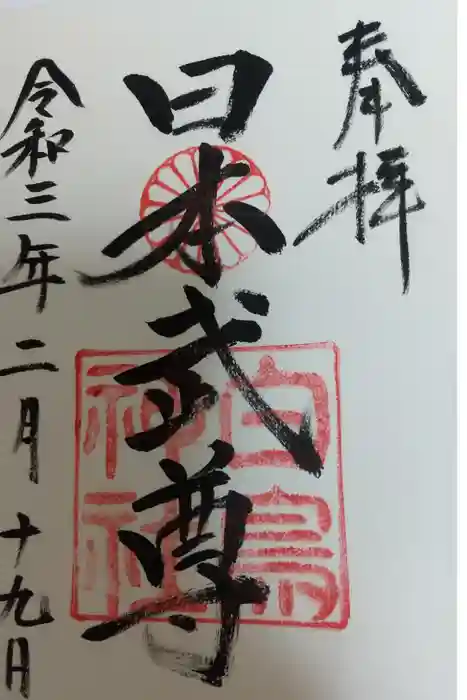 奉拝
日本武尊
白鳥
神社
令和三年二月十九日